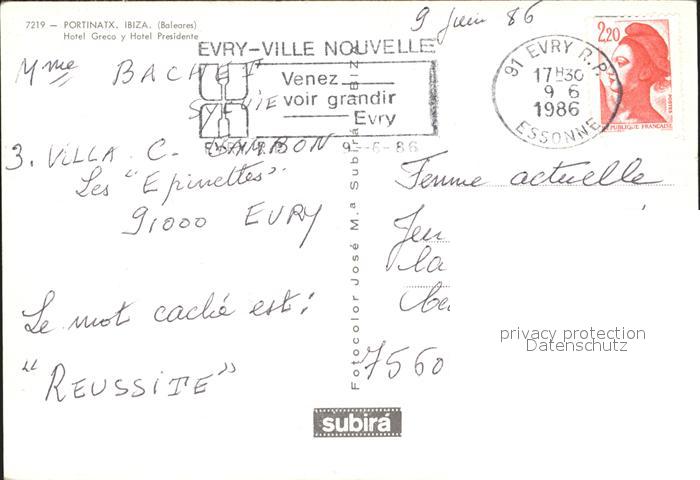 7219 — PORTINATX. IBIZA. (Baleares)
Hotel Greco y Hotel Presidente
9 Juin 86
EVRY-VILLE NOUVELLE
Venez
voir grandir
Evry
9 -6-86
91 EVRY R.P.
17H30
9 6
1986
ESSONNE
2,20
POSTES
REPUBLIQUE FRANCAISE
Mme BACHE
SYLVIE
3. VILLA C.
Les "Epinettes".
91000 EVRY
Le mot caché est:
"REUSSITE"
Fotocolor José M.ª Subirá IBIZA
Femme actuelle
Jeu
la
7560
privacy protection
Datenschutz
subirá